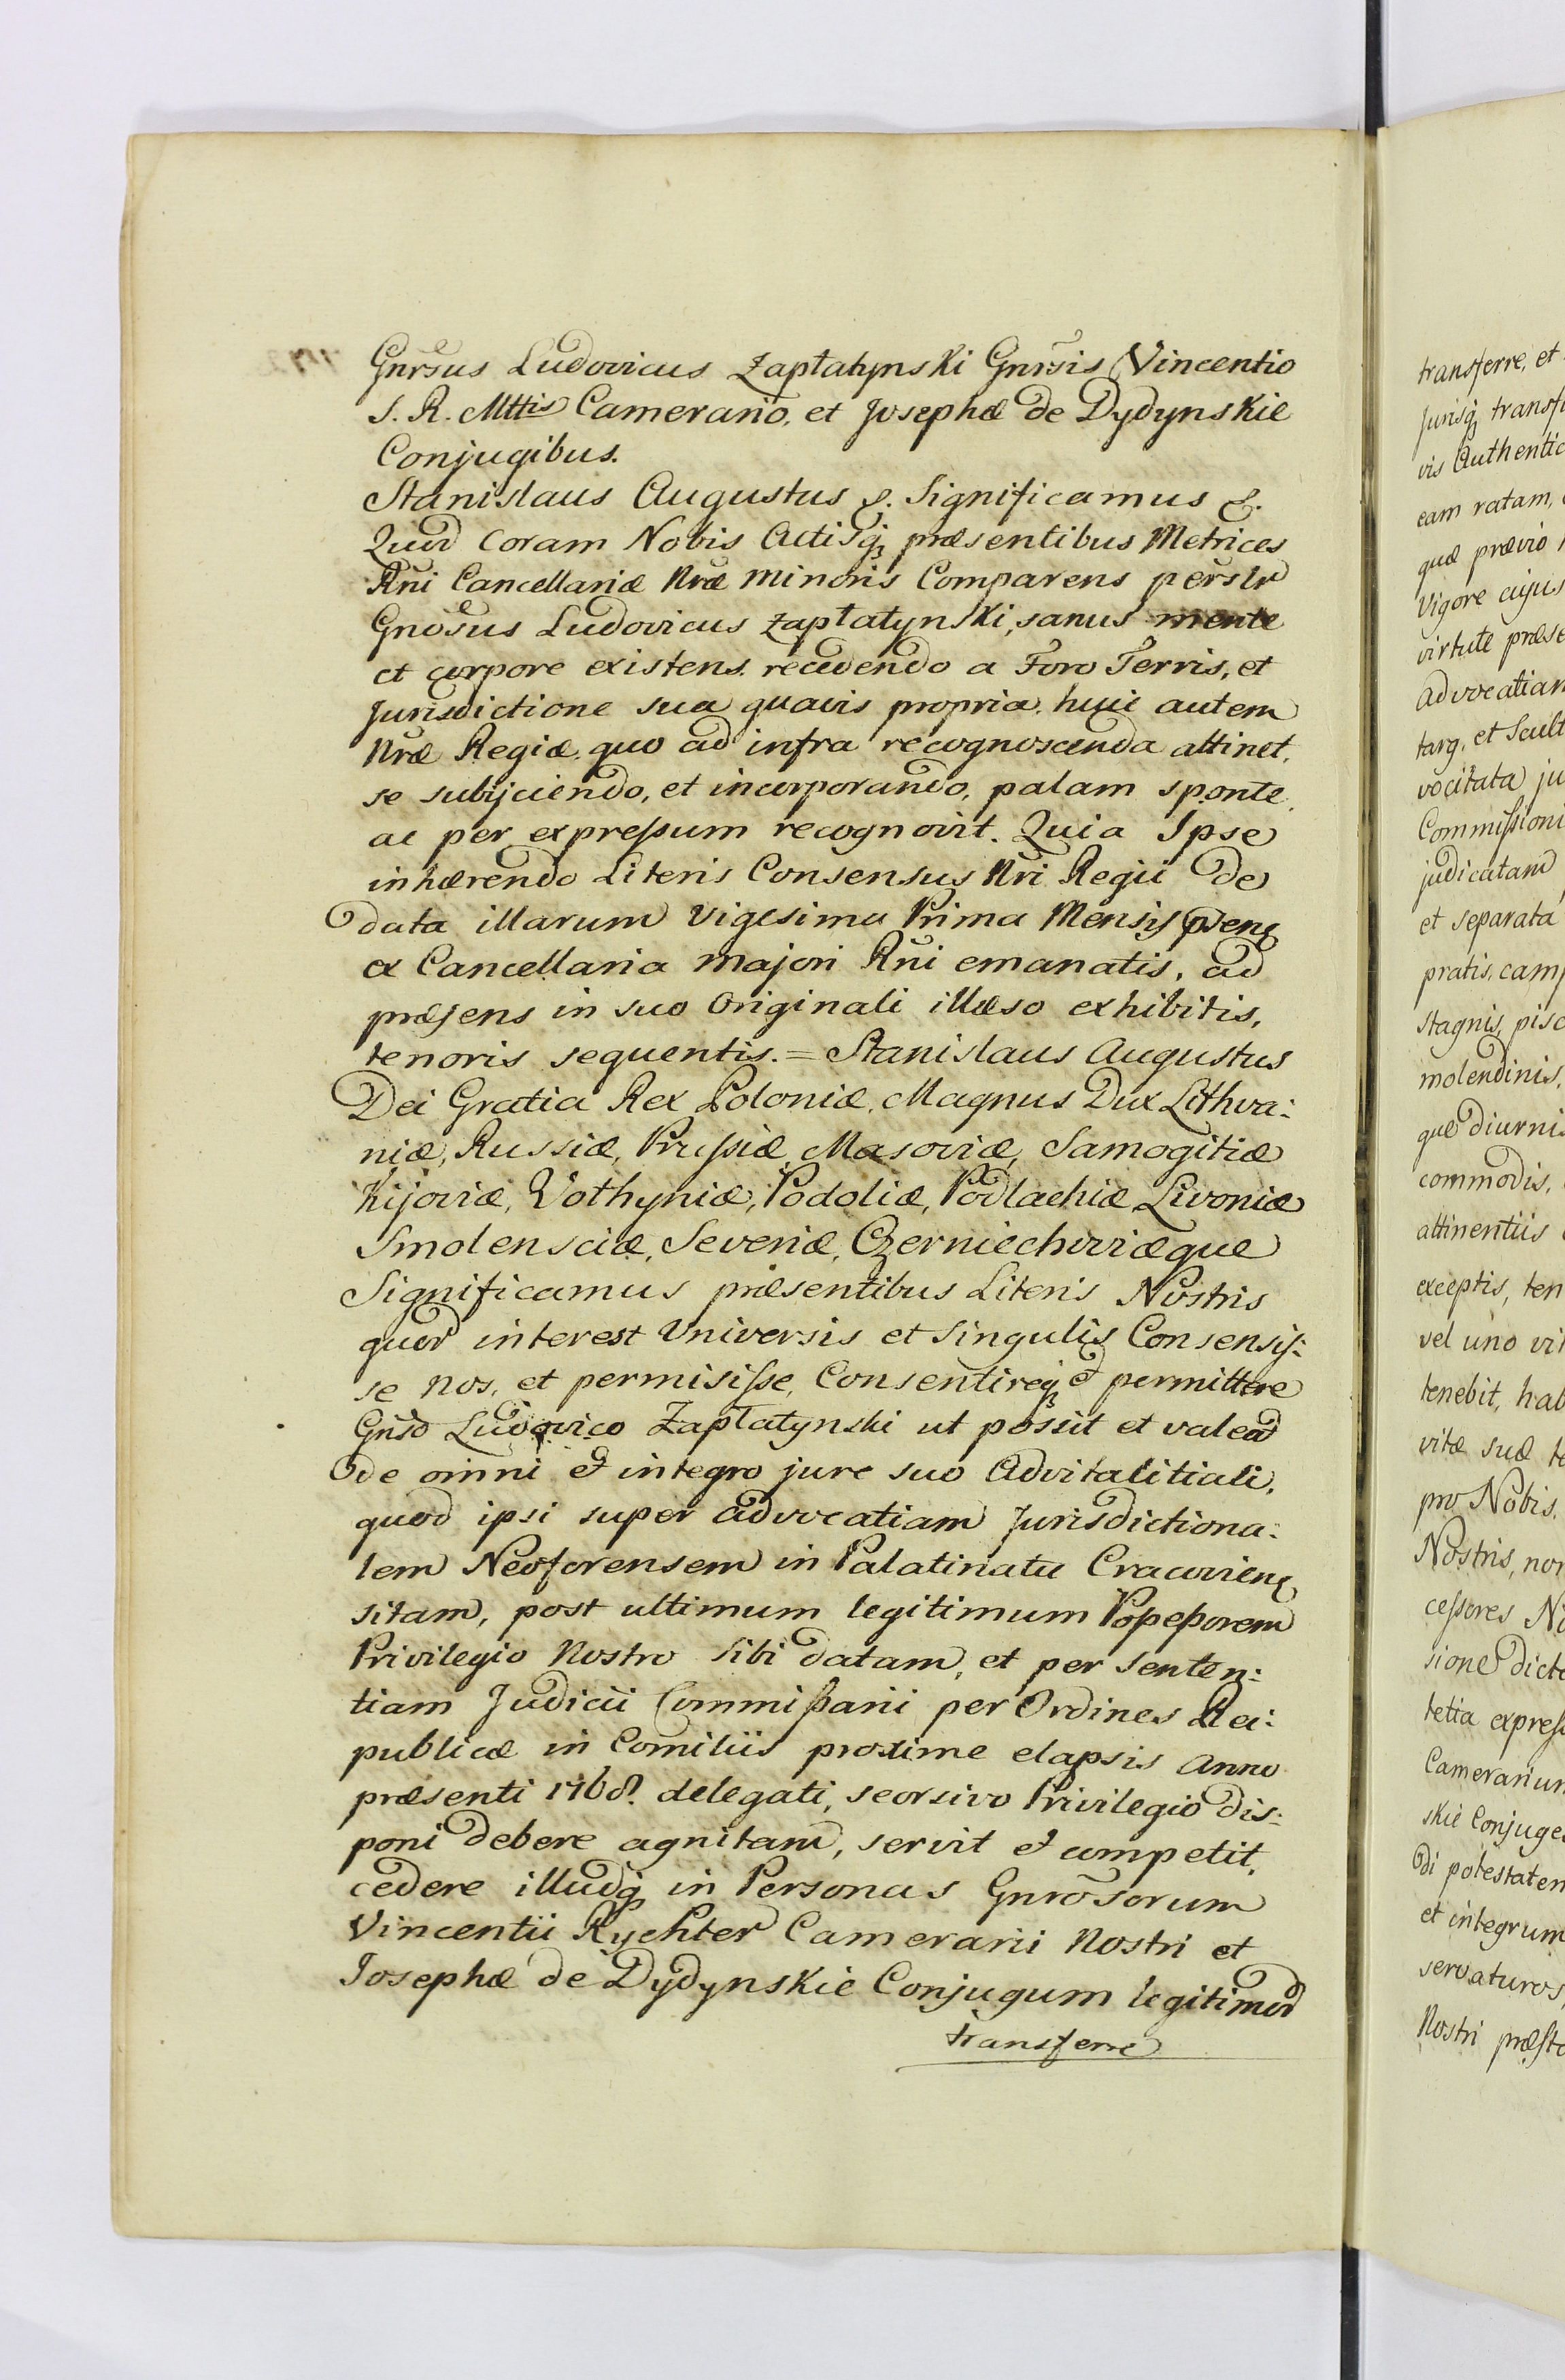 Gnrsus Ludovicus Zaptatynski Gnrsis Vincentio
S. R. Mttis Camerario, et Josephæ de Dydynskie
Conjugibus.
Stanislaus Augustus &. Significamus &.
Quod Coram Nobis Actisq, præsentibus Metrices
Rni Cancellariæ Nræ minoris Comparens perslr
Gnosus Ludovicus Zaptatynski, sanus mente
et corpore existens. recedendo a Foro Terris, et
Jurisdictione sua quavis propria. huic autem
Nræ Regiæ, quo ad infra recognoscenda attinet,
se subijciendo, et incorporando, palam sponte,
ac per expressum recognovit. Quia Ipse
inhærendo Literis Consensus Nri Regii de
data illarum Vigesima Prima Mensis præsenq
ex Cancellaria majori Rni emanatis, ad
præsens in suo Originali illæso exhibitis,
tenoris sequentis. = Stanislaus Augustus
Dei Gratia Rex Poloniæ, Magnus Dux Lithva:
niæ, Russiæ, Prussiæ, Masoviæ, Samogitiæ
Kijoviæ, Volhyniæ, Podoliæ, Podlachiæ, Livoniæ
Smolensciæ, Severiæ, Czerniechoviæque
Significamus præsentibus Literis Nostris
quor interest Universis et Singulis Consensis:
se nos, et permisisse, Consentireq et permittere
Gnso Ludovico Zaptatynski ut possit et valeat
de omni et integro jure suo Advitalitiali,
quod ipsi super advocatiam Jurisdictiona:
lem Neoforensem in Palatinatu Cracovienq
sitam, post ultimum legitimum Possessorem
Privilegio Nostro sibi datam, et per Senten:
tiam Judicii Commissarii per Ordines Rei:
publicæ in Comitiis proxime elapsis Anno
præsenti 1768. delegati, seorsivo Privilegio dis:
poni debere agnitam, servit et competit,
cedere illudq in Personas Gnrosorum
Vincentii Rychter Camerarii Nostri et
Josephæ de Dydynskie Conjugum legitimor
transferre
transferre, et
Jurisq transf
vis Authentic
eam ratam,
quæ prævio
Vigore cujus
virtute præse
advocatiam
targ, et Scult
vocitata ju
Commissioni
judicatam
et separata
pratis, camp
stagnis, pisc
molendinis,
que diurnis
commodis,
attinentiis
exceptis, ten
vel uno vit
tenebit, hab
vitæ suæ te
pro Nobis,
Nostris, non
cessores No
sione dicta
tetia express
Camerarium
skie Conjuges
di potestatem
et integrum
servaturos,
Nostri præsta